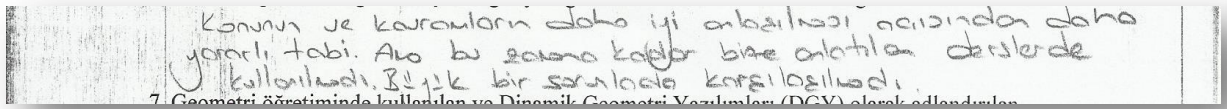 konunun ve kavramların daha iyi anlaşılması açısından daha
yararlı tabi. Ama bu zamana kadar bize anlatılan derslerde
kullanılmadı. Büyük bir sorunlada karşılaşılmadı.
7. Geometri öğretiminde kullanılan ve Dinamik Geometri Yazılımları (DGY) olarak adlandırılan